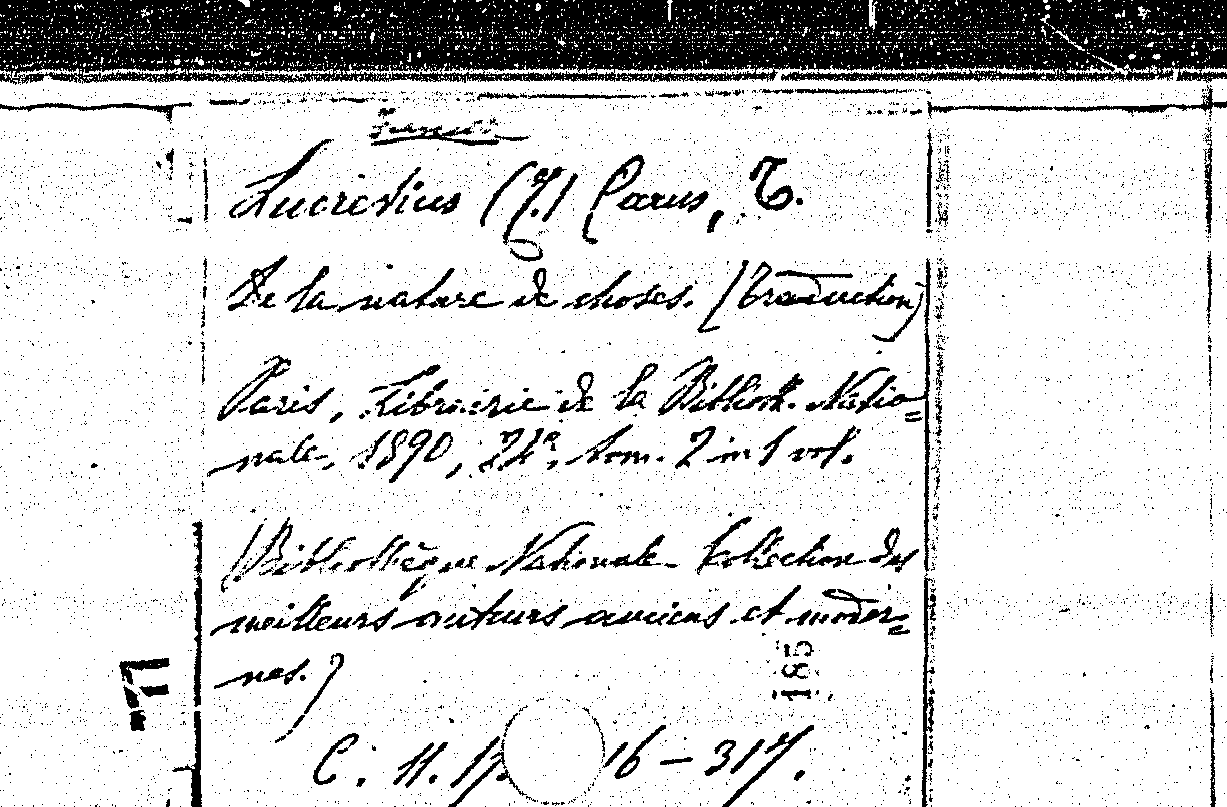 Lucretius (T.) Carus, T.
De la nature de choses. (Traduction)
Paris, Librairie de la Biblioth. Natio=
nale, 1890, 24°, tom. 2 in 1 vol.
(Bibliothèque Nationale. Collection des
meilleurs auteurs anciens et moder=
nes.)
185
C. 11. 16 - 317.